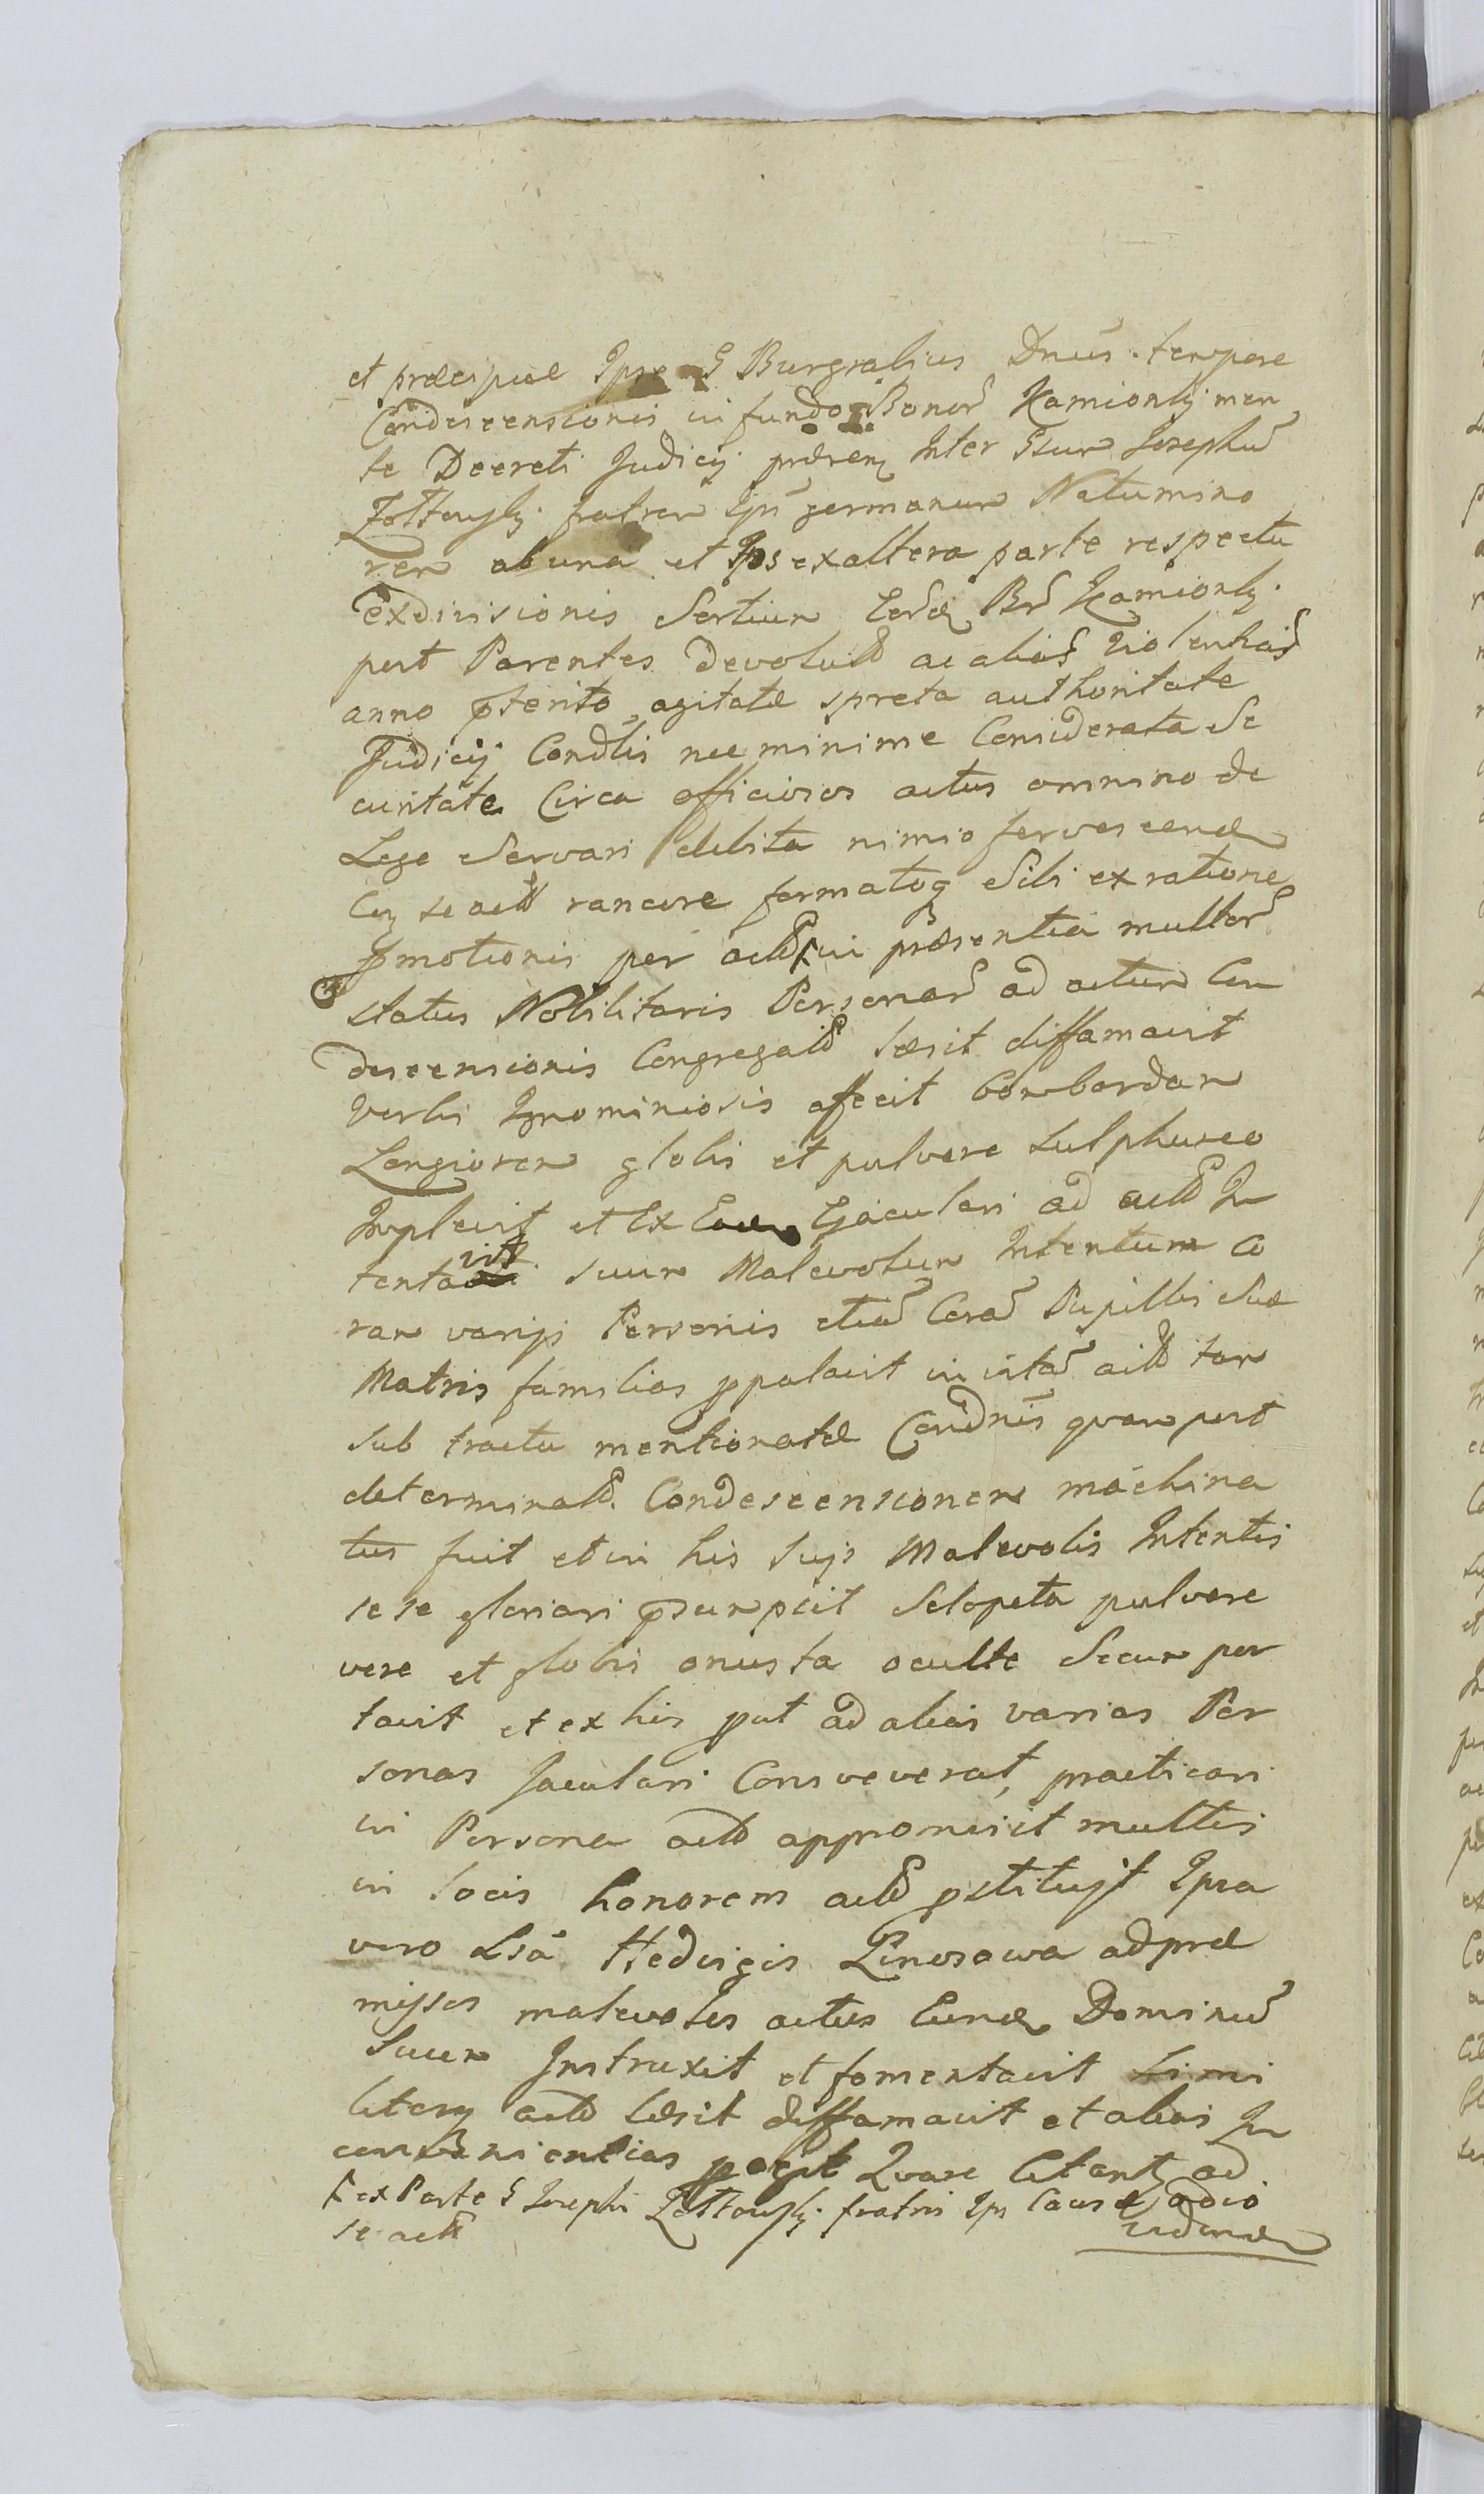 et præcipue Ipse G Burgrabius Dnus tempore
Condescensionis in fundo Bonor Kamionky men
te Decreti Judicij præsens Inter Gsum Josephu
Zołtowsky fratrem Ips germanum Natu mino
rem ab una et Ips ex altera parte respectu
exdivisionis Sortium Eord Br Kamionky
post Parentes devolut ac alias violentias
anno pterito agitatæ spreta authoritate
Judicij Condlis nec minime Considerata Se
curitate Circa officiosos actus omnino de
Lege Servari debita nimio fervescend
Cum se act rancore formatoq Sibi ex ratione
pmotionis per act in præsentia multor
status Nobilitaris Personar ad actum Con
descensionis Congregat læsit diffamavit
verbis Ignominiosis affecit bombardam
Longiorem globis et pulvere sulphureo
Implevit et Ex Ead Ejaculari ad act In
tentavit suum Malevolum Intentum co
ram varijs Personis etia Cora Pupillis Suæ
Matris familias ppalavit in vita act tam
sub tractu mentionatæ Condnis quam post
determinat Condescensionem machina
tus fuit et in his suis Malevolis Intentis
sese gloriari psumpsit Sclopeta pulvere
vere et globis onusta oculte Secum por
tavit et ex his put ad alias varias Per
sonas Jaculari Consveverat, practicari
in Persona act appromisit multis
in locis honorem act pstituit Ipsa
vero Gsa Hedvigis Linosowa ad præ
missos malevolos actus Eund Dominu
Suum Instruxit et fomentavit Simi
literq act læsit diffamavit et alias In
convenientias pegit Quare Citant ad
ex Parte G Josephi Zołtowsky fratris Ips Causæ odio
se act
vidend